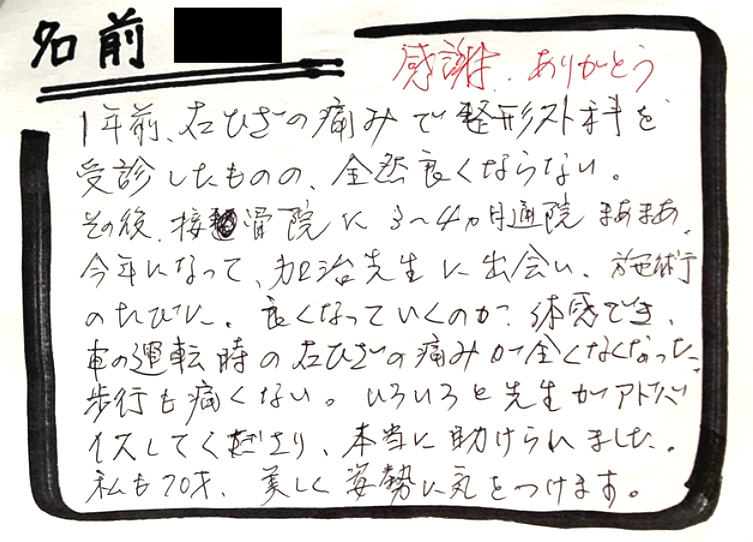 名前
感謝. ありがとう
1年前、右ひざの痛みで整形外科を
受診したものの、全然良くならない。
その後、接骨院に3〜4ヵ月通院 まあまあ、
今年になって、加治先生に出会い、施術
のたびに、良くなっていくのが、体感でき、
車の運転時の右ひざの痛みが全くなくなった、
歩行も痛くない。いろいろと先生がアドバ
イスしてくださり、本当に助けられました。
私も70才、美しく姿勢に気をつけます。